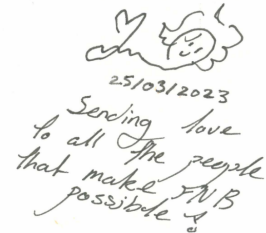 25/03/2023
Sending love
to all the people
that make FNB
possible!